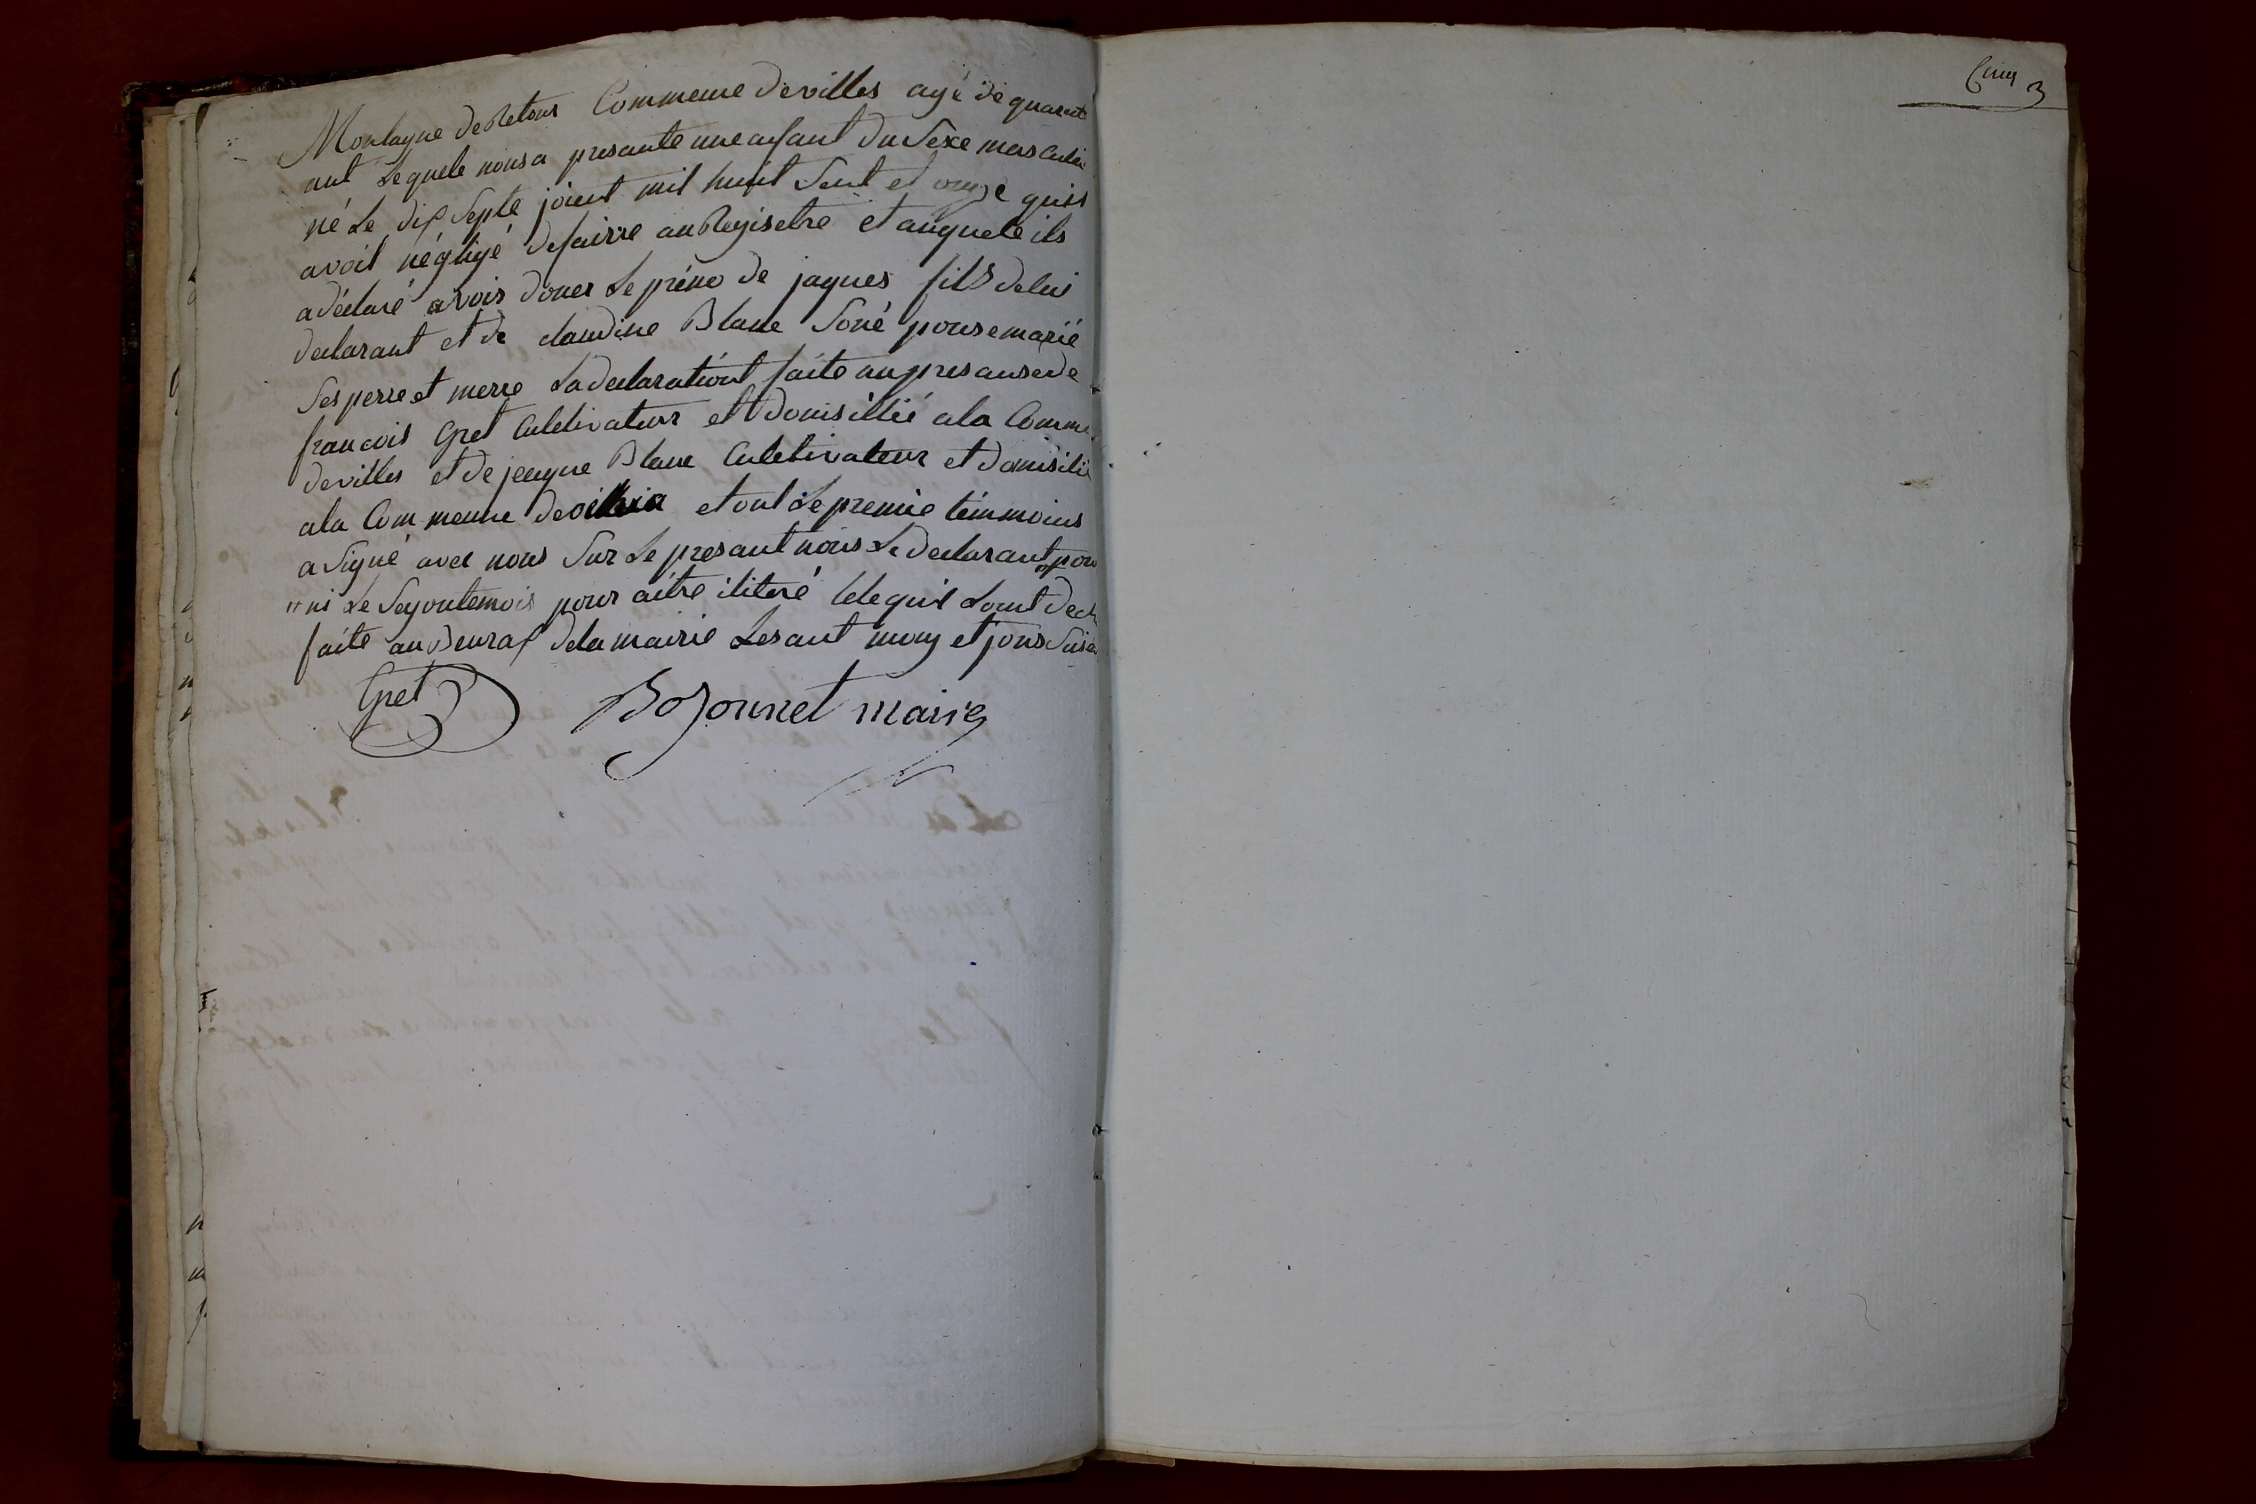 Montagne de Retour Commeune devilles agé de quarante
ant Lequele nous a presante une anfant du Sexe masculin
né Le dix Septe jouent mil huit Sent et onze quis
avoit négligé defairre au Regisetre et auquele ils
a déclaré avoir doner Le préno de jaques fils de lui
declarant et de claudine Blanc Son é pouse marié
Ses perre et merre La declarationt faite au presanse de
francois Gret Culetivateur et Domisillié a la Comme
devilles et de jeaque Blanc Culetivateur et domisilié
a la Com meune de et ont Le premie témmoins
a Signé avec nous Sur Le presant nous Le declarant non
ni Le Segont emois pour aitre ilitéré lele quil Lont decl
faite au Beurax de la mairie Les ant moy et jour Suisd
Gret Bozonnet maire
Cinq 3